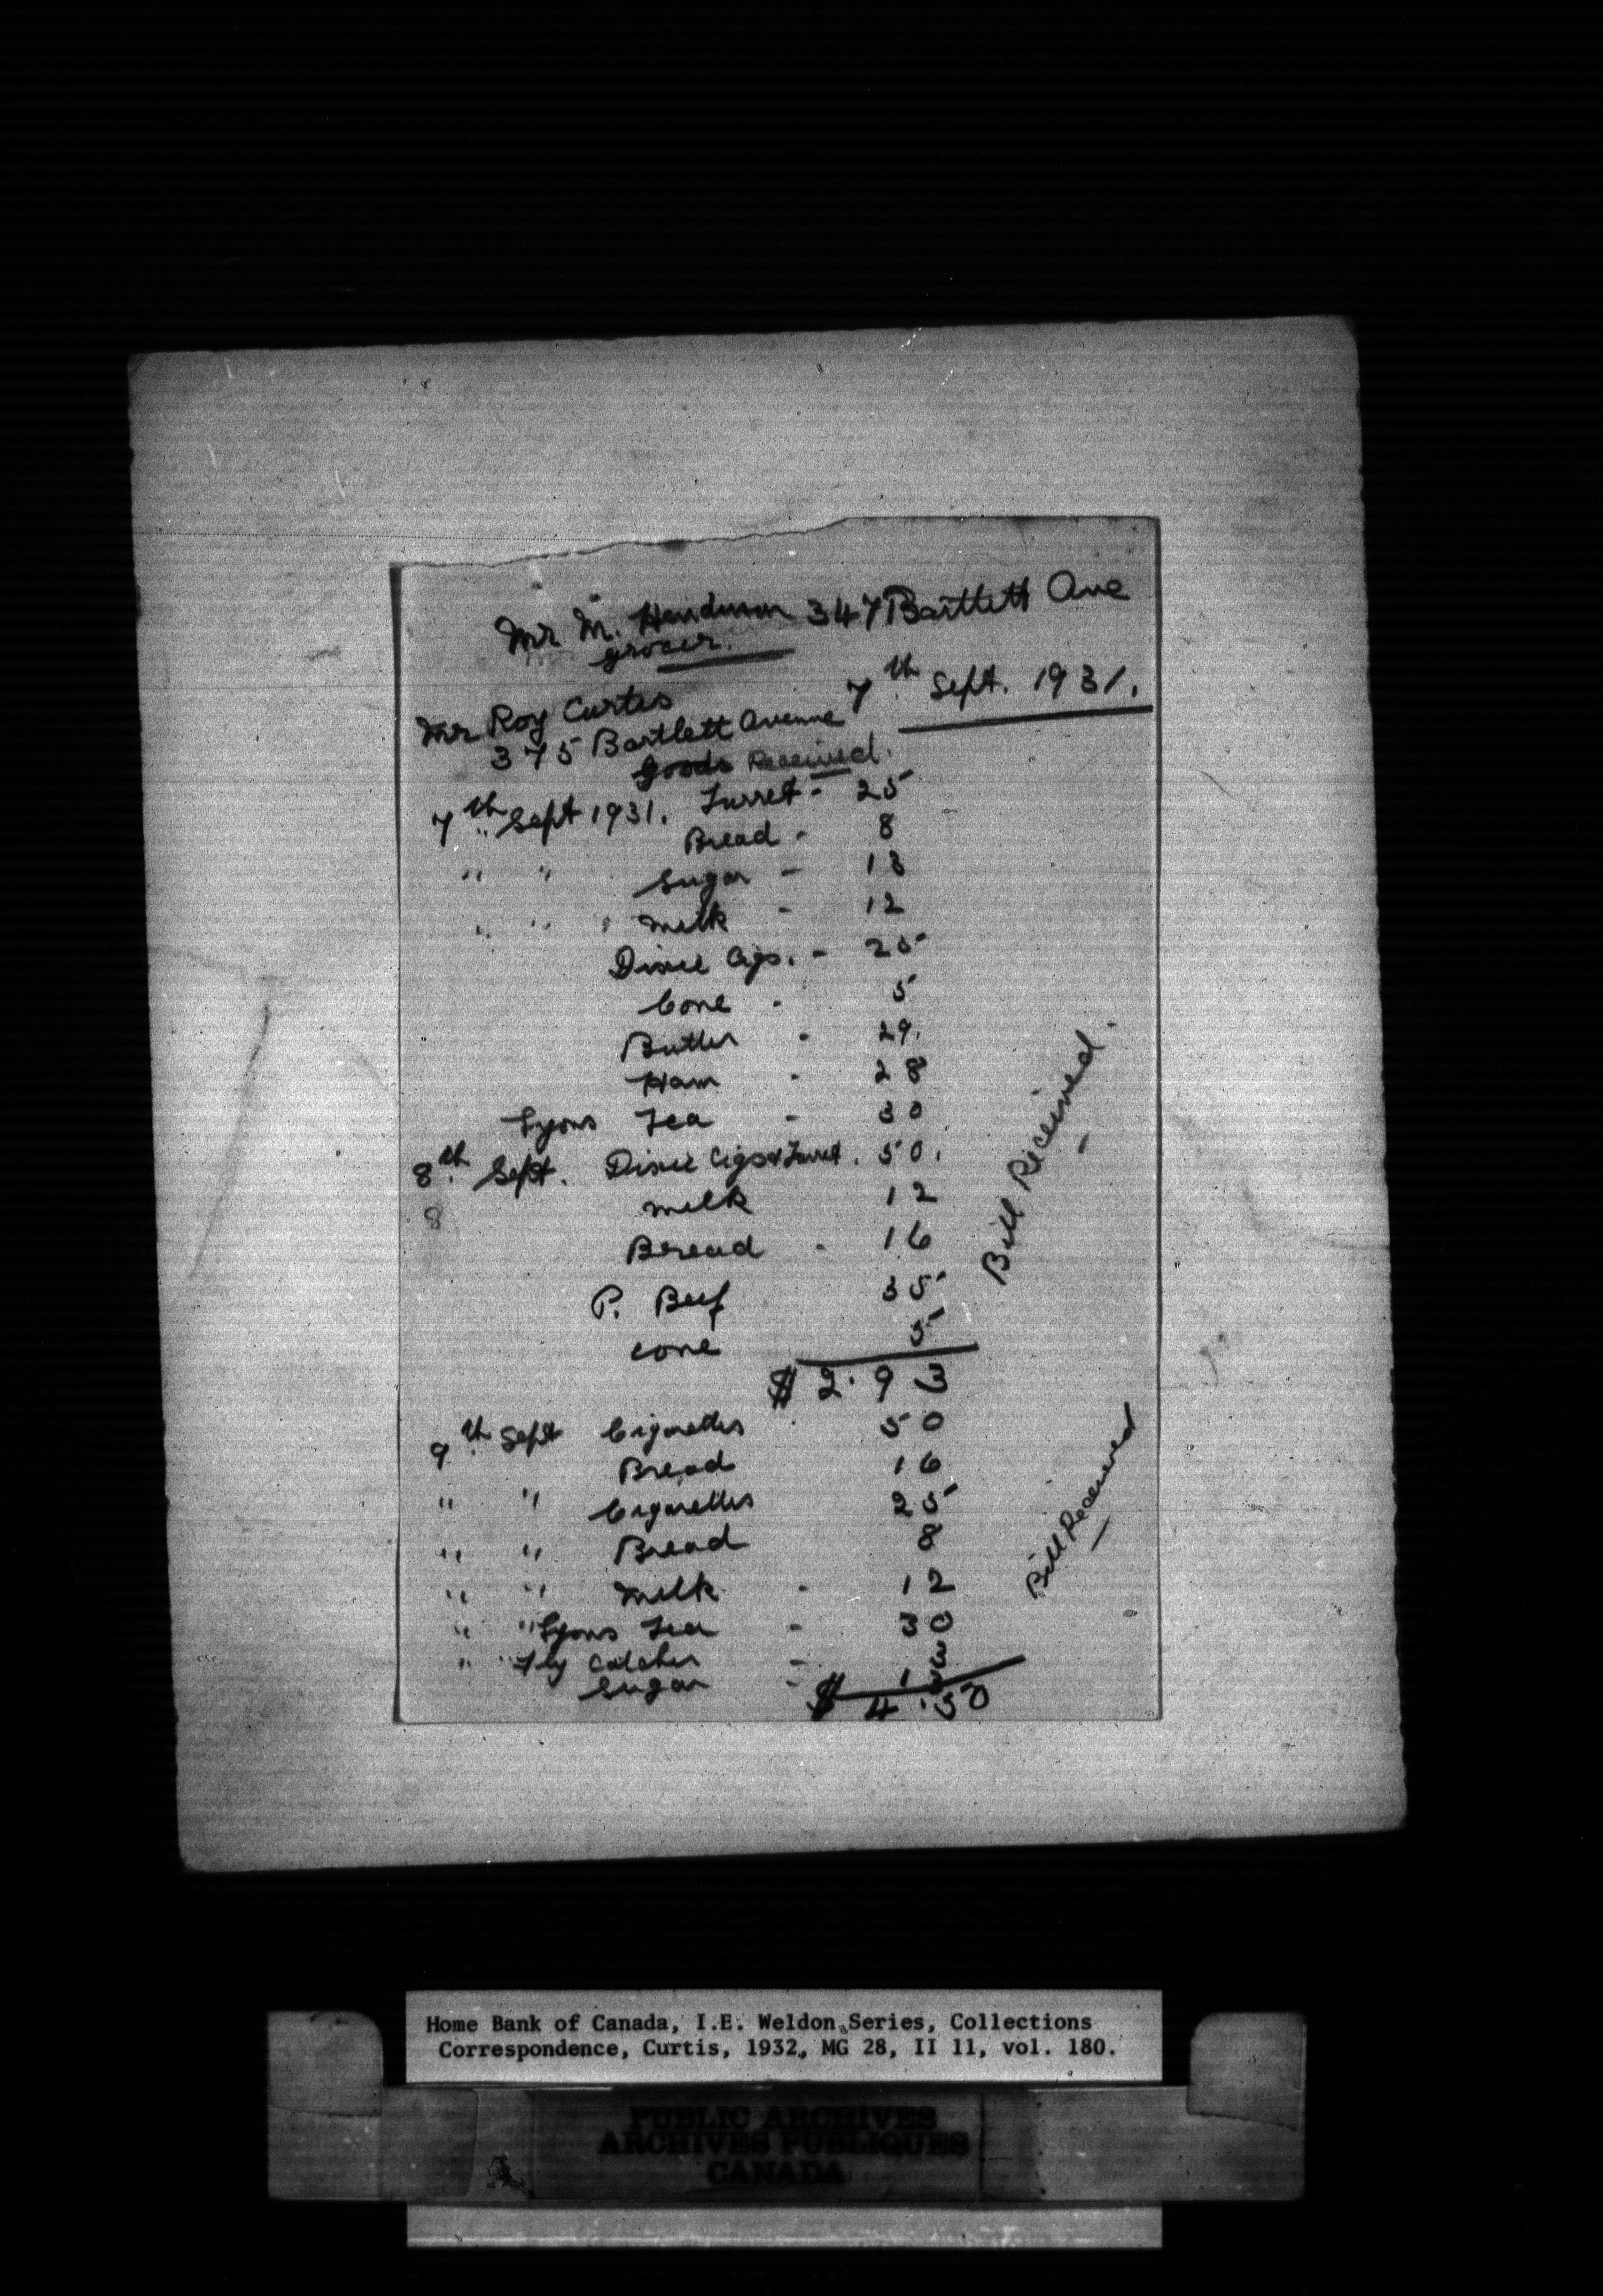 Mr M. Henderson 347 Bartlett Ave
grocer.
7th Sept. 1931.
Mr Roy Curtis
375 Bartlett Avenue
Goods Received.
7th Sept 1931. Turret - 25
" " Bread - 8
" " Sugar - 13
" " " milk - 12
Dixie Cigs. - 25
Cone - 5
Butter - 29.
Ham - 28
Lyons Tea - 30
8th Sept. Dixie Cigs & Turret. 50.
8 milk 12
Bread - 16
P. Beef 35
cone 5
$ 2.93
Bill Received.
9th Sept Cigarettes 50
Bread 16
" " Cigarettes 25
" " Bread 8
" " milk - 12
" " Lyons Tea - 30
" " Fly Catcher - 3
Sugar - 13
$ 4.50
Bill Received
Home Bank of Canada, I.E. Weldon Series, Collections
Correspondence, Curtis, 1932, MG 28, II 11, vol. 180.
PUBLIC ARCHIVES
ARCHIVES PUBLIQUES
CANADA